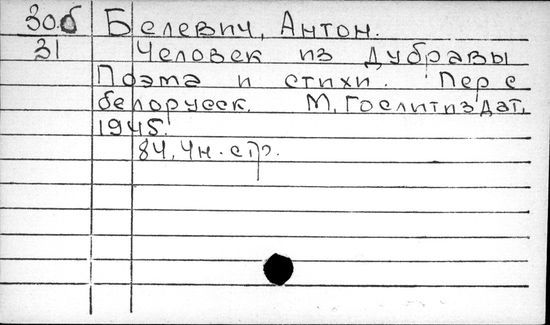 30б Белевич, Антон.
31 Человек из Дубравы
Поэма и стихи. Пер с
белорусск. М, Гослитиздат,
1945.
84, 4н. стр.